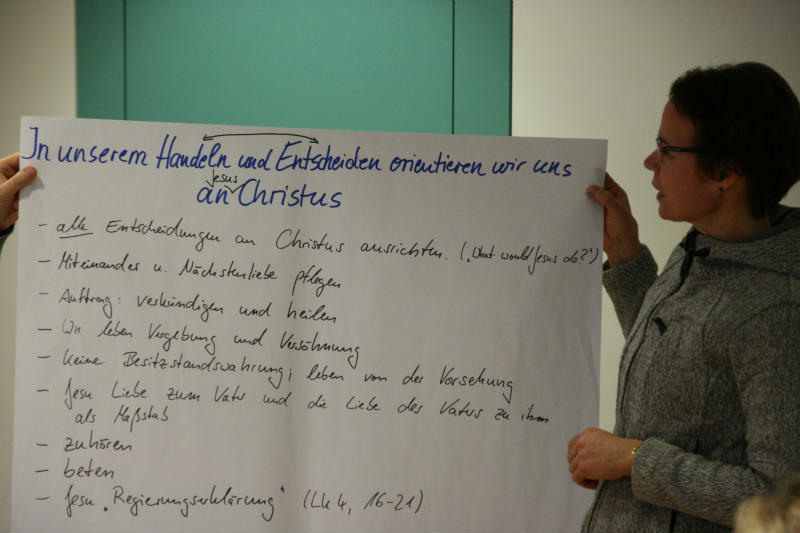 In unserem Handeln und Entscheiden orientieren wir uns
Jesus
an Christus
- alle Entscheidungen an Christus ausrichten. („What would Jesus do?")
- Miteinander u. Nächstenliebe pflegen
- Auftrag: verkündigen und heilen
- Wir leben Vergebung und Versöhnung
- keine Besitzstandswahrung; leben von der Vorsehung
- Jesu Liebe zum Vater und die Liebe des Vaters zu ihm
als Maßstab
- zuhören
- beten
- Jesu „Regierungserklärung" (Lk 4, 16-21)